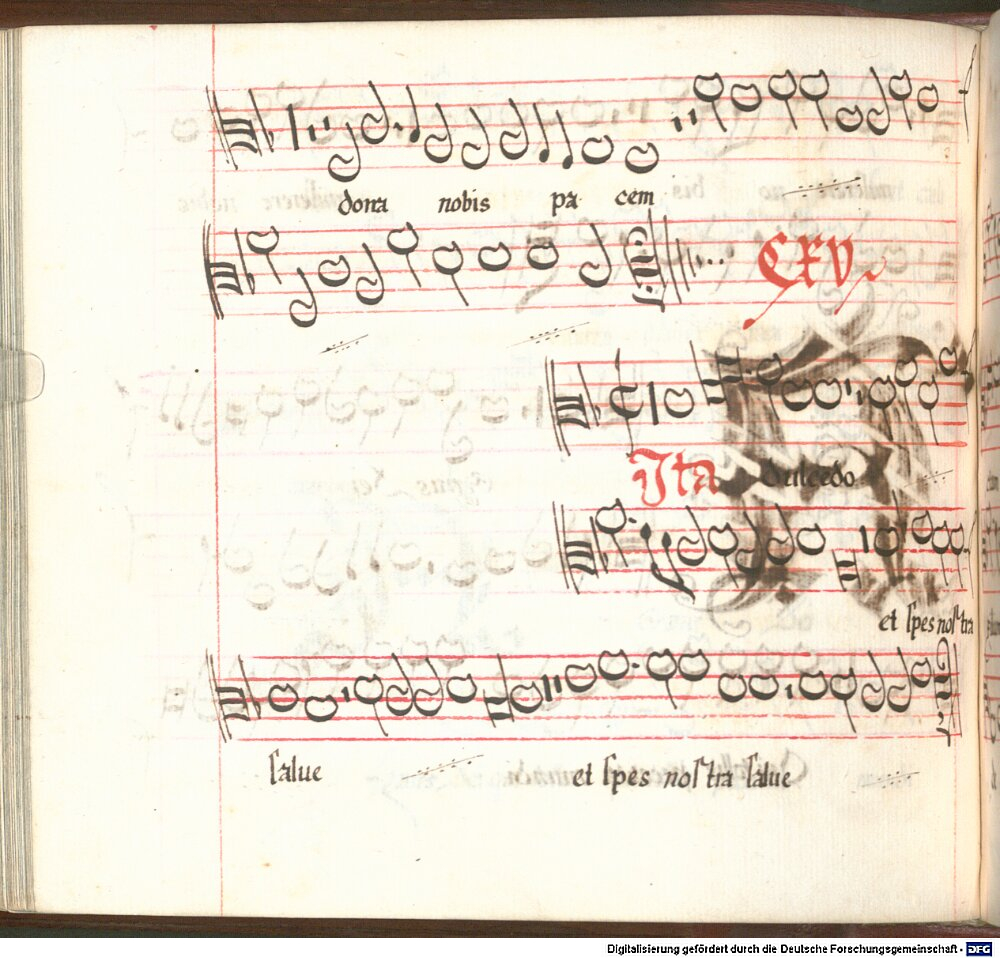 dona nobis pa cem
CXV
Ita dulcedo
et ſpes noſtra
ſalue et ſpes noſtra ſalue
Digitalisierung gefördert durch die Deutsche Forschungsgemeinschaft - DFG